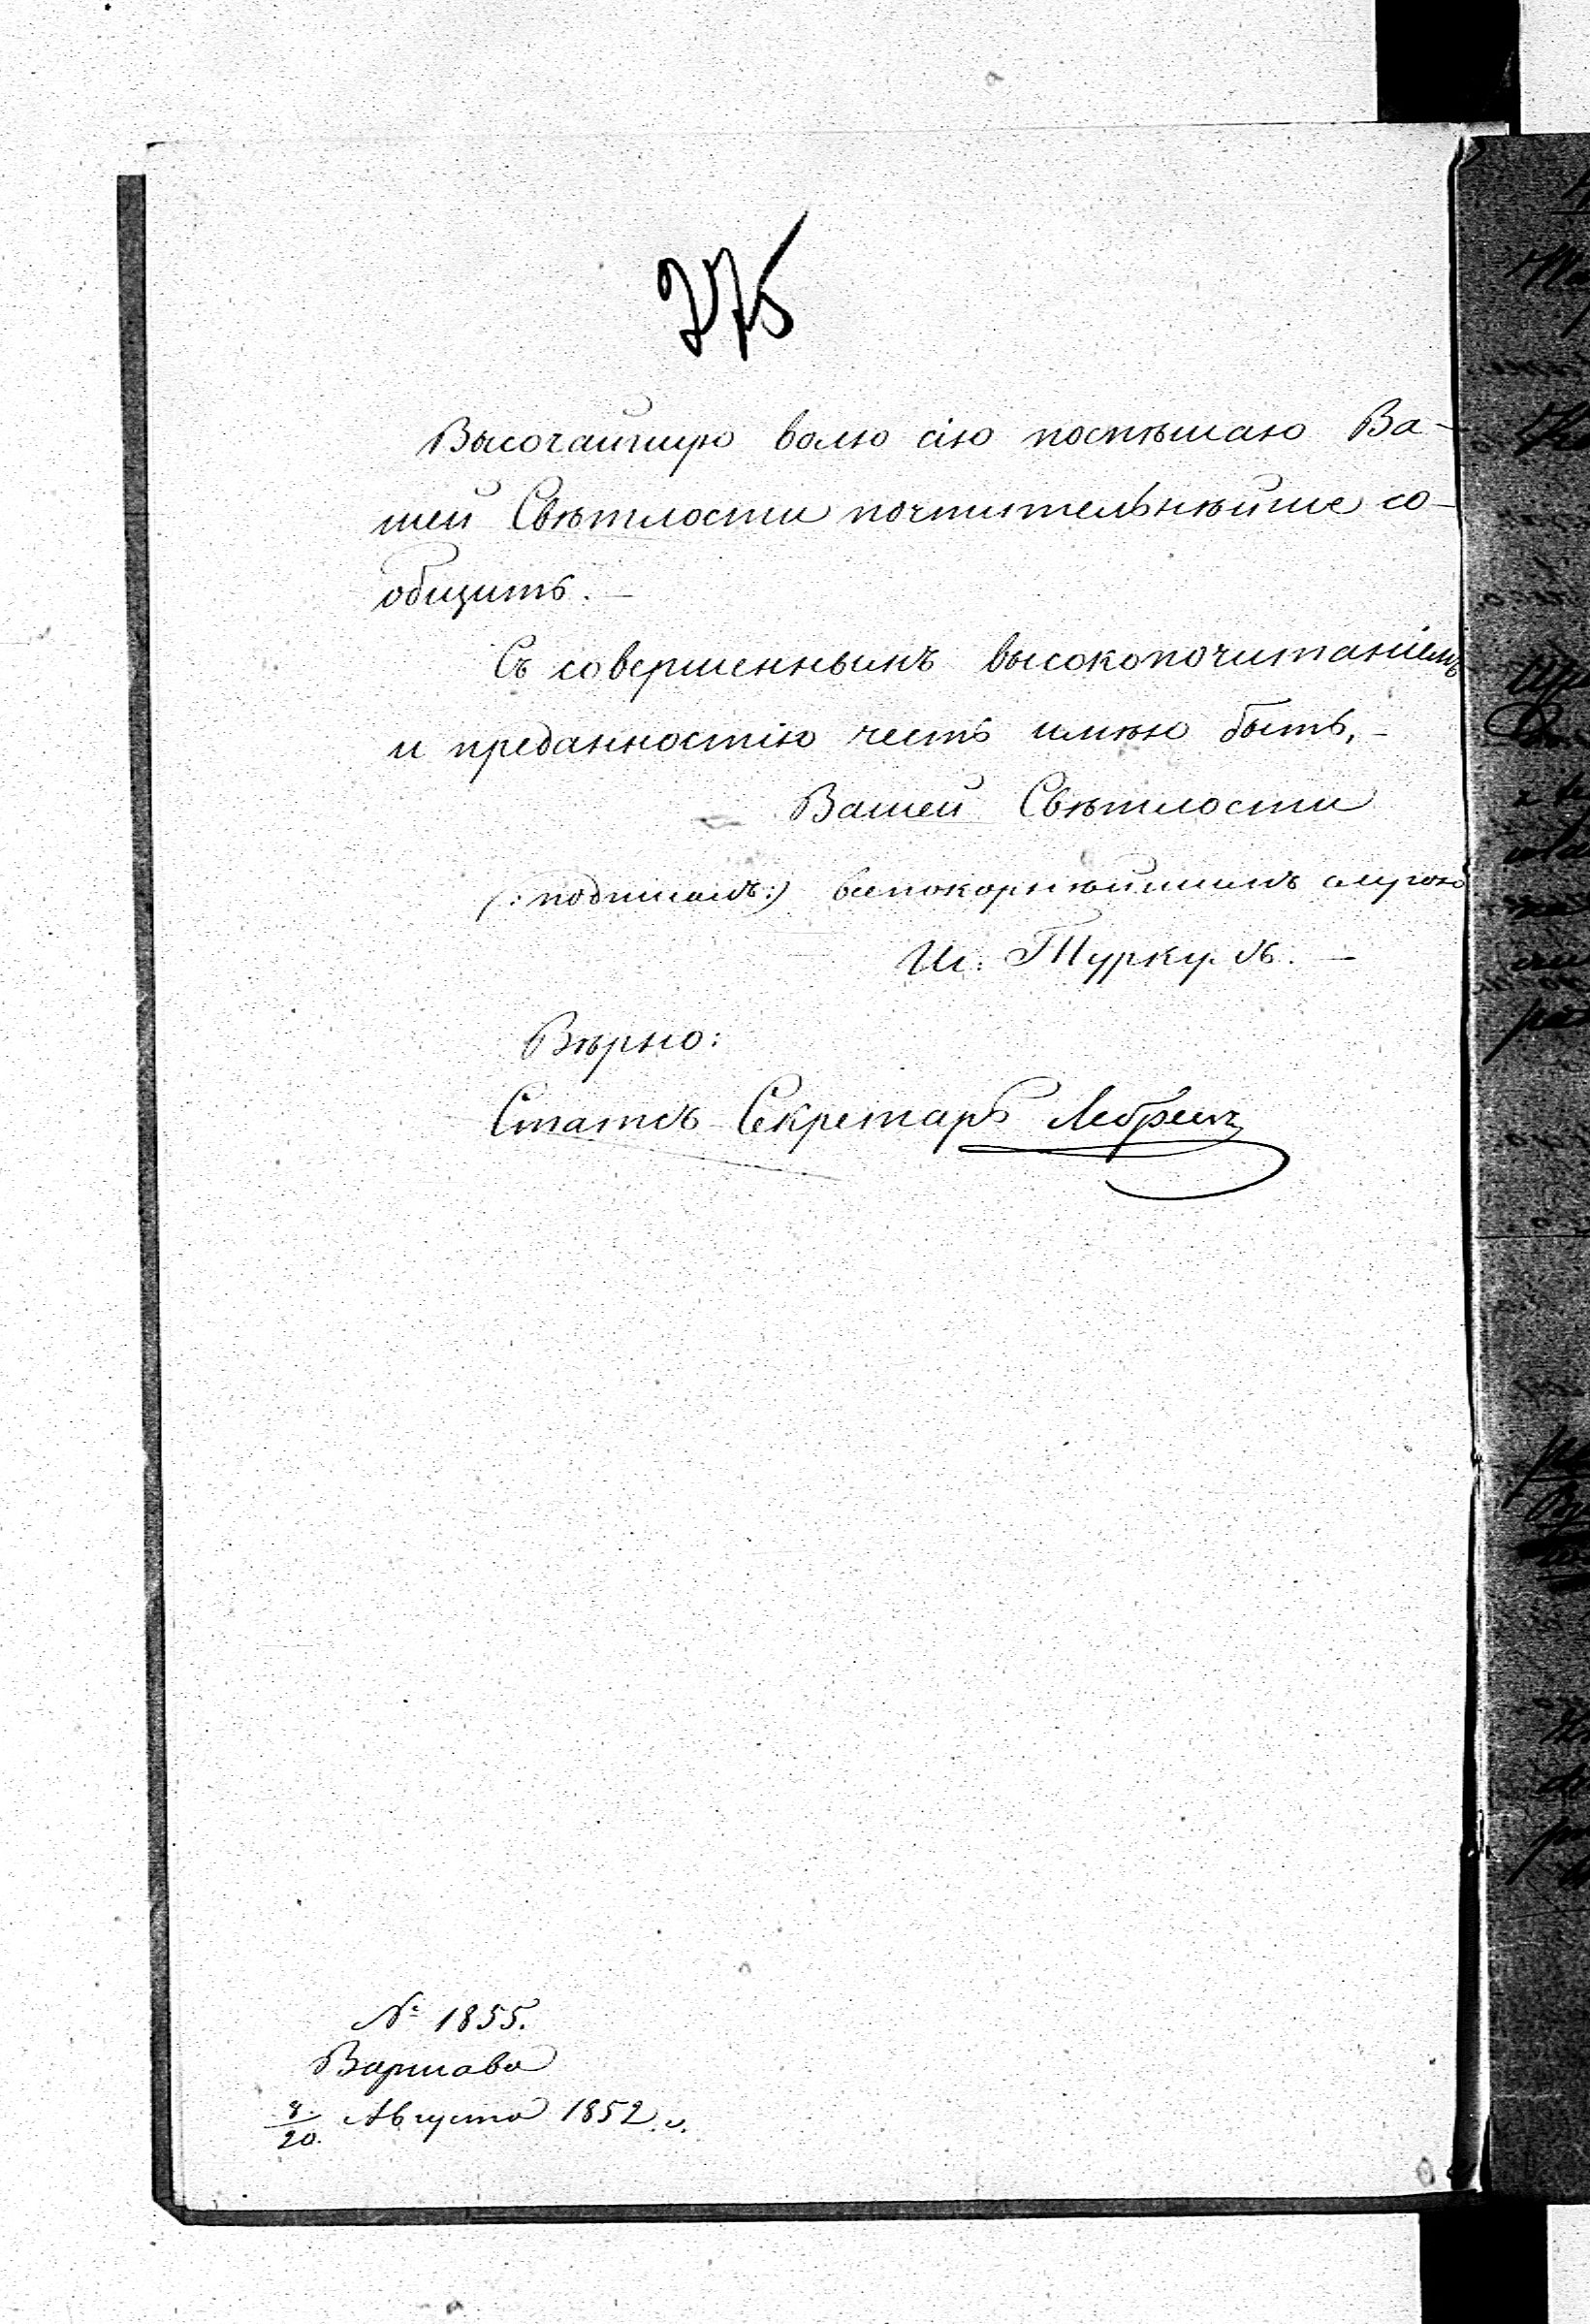 275
Высочайшую волю сію поспѣшаю Ва-
шей Свѣтлости почтительнѣйше со-
общить.
Съ совершеннымъ высокопочитаніемъ
и преданностію честь имѣю быть,
Вашей Свѣтлости
(:подписалъ:) всепокорнѣйшимъ слугою
И: Туркулъ.
Вѣрно:
Статсъ Секретарь Лебрюнъ
№ 1855.
Варшава
8/20. Августа 1852 г.